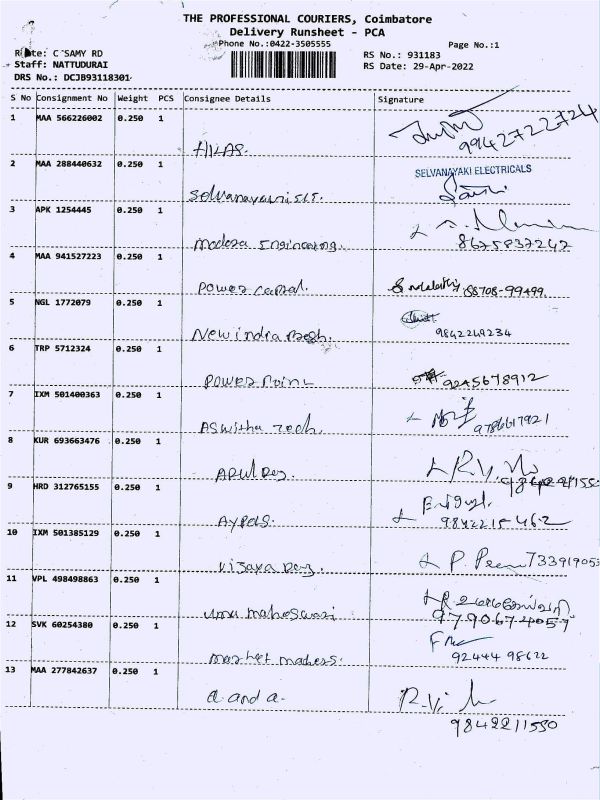 THE PROFESSIONAL COURIERS, Coimbatore
Delivery Runsheet - PCA
Phone No.:0422-3505555
Page No.:1
Route: C SAMY RD
Staff: NATTUDURAI
DRS No.: DCJB93118301
RS No.: 931183
RS Date: 29-Apr-2022
S No Consignment No Weight PCS Consignee Details Signature
1 MAA 566226002 0.250 1
9942722724
2 MAA 288440632 0.250 1 SELVANAYAKI ELECTRICALS
3 APK 1254445 0.250 1
Madora Engineering. 8675837242
4 MAA 941527223 0.250 1
Power Capital. 88708-99499
5 NGL 1772079 0.250 1
New india 9842249234
6 TRP 5712324 0.250 1
Power Point 9245678912
7 IXM 501400363 0.250 1
Aswitha Tech. 9786617921
8 KUR 693663476 0.250 1
9 HRD 312765155 0.250 1
9842215462
10 IXM 501385129 0.250 1
Vijaya 733919053
11 VPL 498498863 0.250 1
uma maheswari 9790674057
12 SVK 60254380 0.250 1
market makers. 92444 98622
13 MAA 277842637 0.250 1
a and a.
9842211550